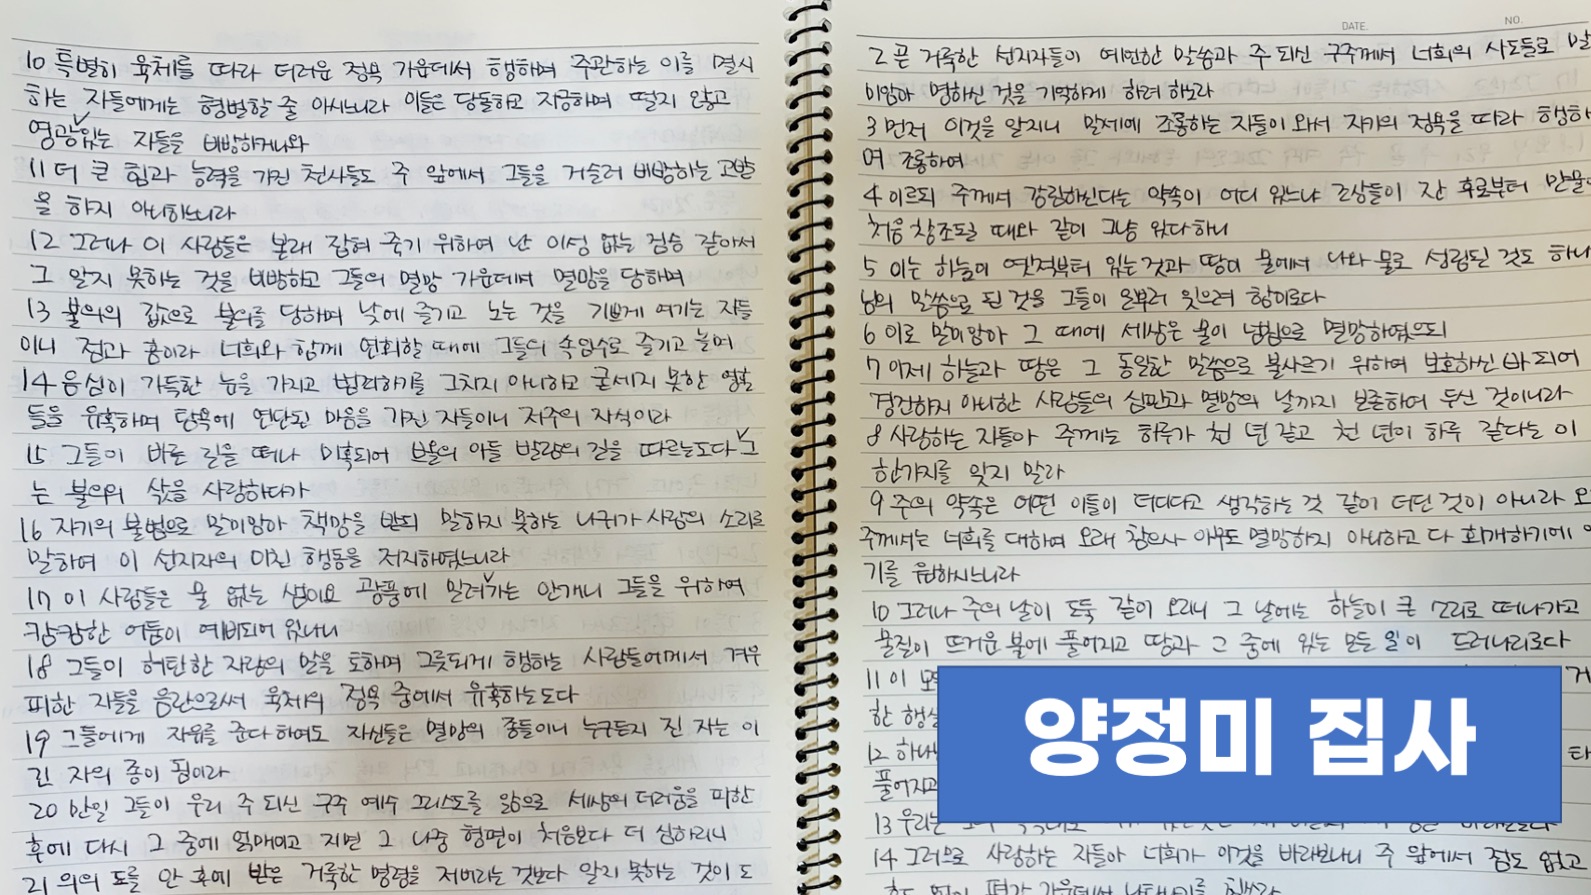 10 특별히 육체를 따라 더러운 정욕 가운데서 행하며 주관하는 이를 멸시
하는 자들에게는 형벌할 줄 아시느니라 이들은 당돌하고 자긍하며 떨지 않고
영광있는 자들을 비방하거니와
11 더 큰 힘과 능력을 가진 천사들도 주 앞에서 그들을 거슬러 비방하는 고발
을 하지 아니하느니라
12 그러나 이 사람들은 본래 잡혀 죽기 위하여 난 이성 없는 짐승 같아서
그 알지 못하는 것을 비방하고 그들의 멸망 가운데서 멸망을 당하며
13 불의의 값으로 불의를 당하며 낮에 즐기고 노는 것을 기쁘게 여기는 자들
이니 점과 흠이라 너희와 함께 연회할 때에 그들의 속임수로 즐기고 놀며
14 음심이 가득한 눈을 가지고 범죄하기를 그치지 아니하고 굳세지 못한 영혼
들을 유혹하며 탐욕에 연단된 마음을 가진 자들이니 저주의 자식이라
15 그들이 바른 길을 떠나 미혹되어 브올의 아들 발람의 길을 따르는도다 그
는 불의의 삯을 사랑하다가
16 자기의 불법으로 말미암아 책망을 받되 말하지 못하는 나귀가 사람의 소리로
말하여 이 선지자의 미친 행동을 저지하였느니라
17 이 사람들은 물 없는 샘이요 광풍에 밀려가는 안개니 그들을 위하여
캄캄한 어둠이 예비되어 있나니
18 그들이 허탄한 자랑의 말을 토하며 그릇되게 행하는 사람들에게서 겨우
피한 자들을 음란으로써 육체의 정욕 중에서 유혹하는도다
19 그들에게 자유를 준다 하여도 자신들은 멸망의 종들이니 누구든지 진 자는 이
긴 자의 종이 됨이라
20 만일 그들이 우리 주 되신 구주 예수 그리스도를 앎으로 세상의 더러움을 피한
후에 다시 그 중에 얽매이고 지면 그 나중 형편이 처음보다 더 심하리니
21 의의 도를 안 후에 받은 거룩한 명령을 저버리는 것보다 알지 못하는 것이 도
DATE. NO.
2 곧 거룩한 선지자들이 예언한 말씀과 주 되신 구주께서 너희의 사도들로 말
미암아 명하신 것을 기억하게 하려 하노라
3 먼저 이것을 알지니 말세에 조롱하는 자들이 와서 자기의 정욕을 따라 행하
며 조롱하여
4 이르되 주께서 강림하신다는 약속이 어디 있느냐 조상들이 잔 후로부터 만물이
처음 창조될 때와 같이 그냥 있다 하니
5 이는 하늘이 옛적부터 있는 것과 땅이 물에서 나와 물로 성립된 것도 하나
님의 말씀으로 된 것을 그들이 일부러 잊으려 함이로다
6 이로 말미암아 그 때에 세상은 물이 넘침으로 멸망하였으되
7 이제 하늘과 땅은 그 동일한 말씀으로 불사르기 위하여 보호하신 바 되어
경건하지 아니한 사람들의 심판과 멸망의 날까지 보존하여 두신 것이니라
8 사랑하는 자들아 주께는 하루가 천 년 같고 천 년이 하루 같다는 이
한가지를 잊지 말라
9 주의 약속은 어떤 이들이 더디다고 생각하는 것 같이 더딘 것이 아니라 오
주께서는 너희를 대하여 오래 참으사 아무도 멸망하지 아니하고 다 회개하기에 이
기를 원하시느니라
10 그러나 주의 날이 도둑 같이 오리니 그 날에는 하늘이 큰 소리로 떠나가고
물질이 뜨거운 불에 풀어지고 땅과 그 중에 있는 모든 일이 드러나리로다
11 이 거
한
12 타
풀어지고
13 우리는
14 그러므로 사랑하는 자들아 너희가 이것을 바라보나니 주 앞에서 점도 없고
양정미 집사